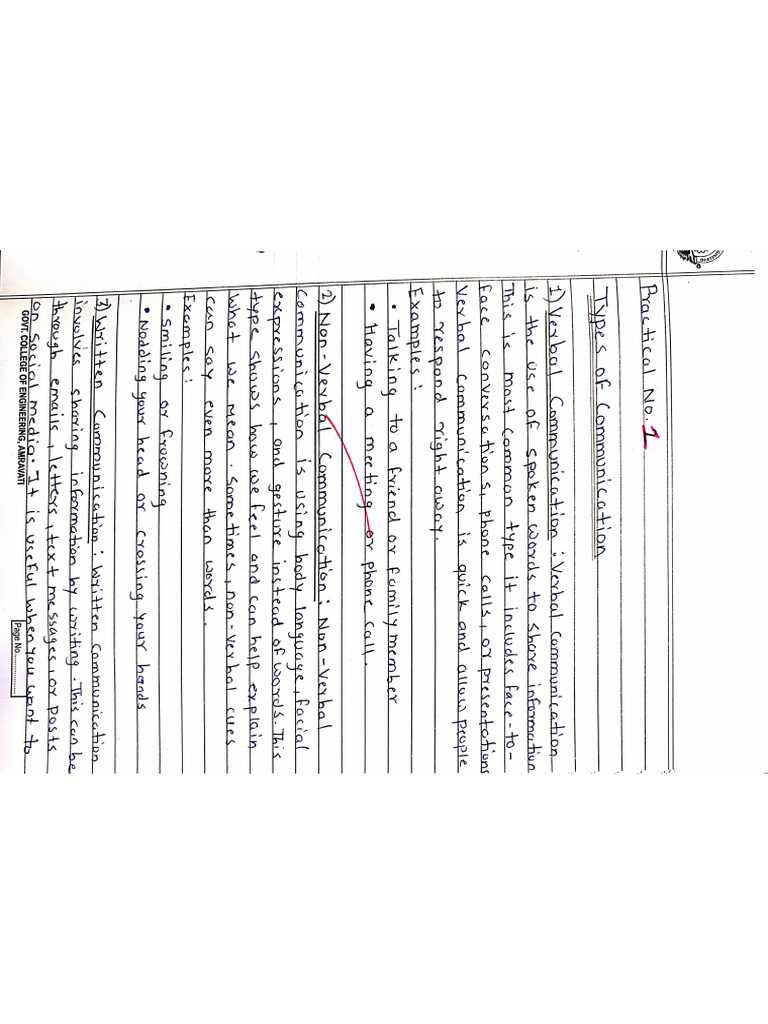 Practical No. 1
Types of Communication
1) Verbal Communication : Verbal Communication
is the use of spoken words to share information
This is most common type it includes face-to-
face conversations, phone calls, or presentations
Verbal communication is quick and allow people
to respond right away.
Examples :
• Talking to a friend or family member
• Having a meeting or phone call.
2) Non-Verbal Communication : Non-Verbal
Communication is using body language, facial
expressions, and gesture instead of words. This
type shows how we feel and can help explain
what we mean. Sometimes, non-verbal cues
can say even more than words.
Examples :
• Smiling or frowning
• Nodding your head or crossing your hands
3) Written Communication : Written communication
involves sharing information by writing. This can be
through emails, letters, text messages, or posts
on social media. It is useful when you want to
GOVT. COLLEGE OF ENGINEERING, AMRAVATI
Page No...............